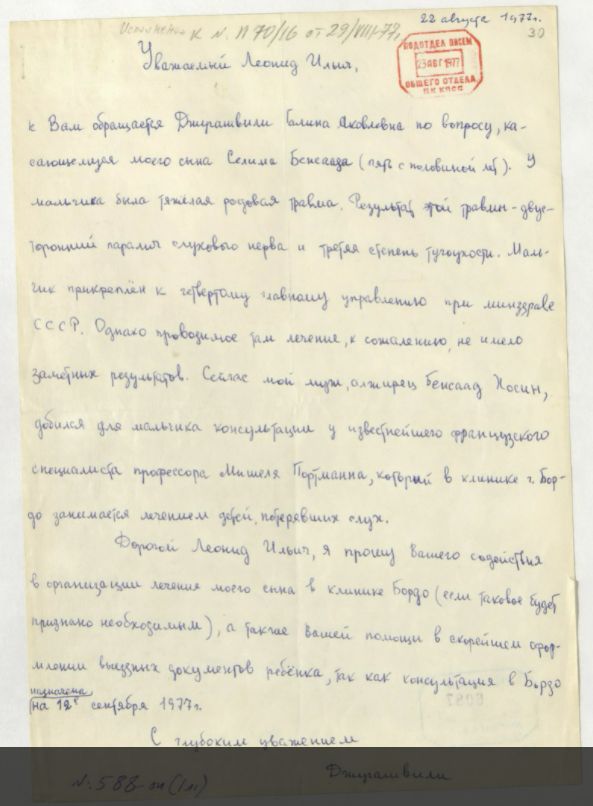 22 августа 1977г.
Исполнено к N. П 70/16 от 29/VIII-77г.
30
Уважаемый Леонид Ильич,
ПОДОТДЕЛ ПИСЕМ
23 АВГ 1977
ОБЩЕГО ОТДЕЛА
ЦК КПСС
к Вам обращается Джугашвили Галина Яковлевна по вопросу, ка-
сающемуся моего сына Селима Бенсаада (пять с половиной лет). У
мальчика была тяжёлая родовая травма. Результат этой травмы - двус-
торонний паралич слухового нерва и третья степень тугоухости. Маль-
чик прикреплён к четвёртому главному управлению при минздраве
СССР. Однако проводимое там лечение, к сожалению, не имело
заметных результатов. Сейчас мой муж, алжирец Бенсаад Хосин,
добился для мальчика консультации у известнейшего французского
специалиста профессора Мишеля Портманна, который в клинике г. Бор-
до занимается лечением детей, потерявших слух.
Дорогой Леонид Ильич, я прошу Вашего содействия
в организации лечения моего сына в клинике Бордо (если таковое будет
признано необходимым), а также Вашей помощи в скорейшем офор-
млении выездных документов ребёнка, так как консультация в Бордо
назначена
на 12е сентября 1977г.
С глубоким уважением
Джугашвили
N. 588-оп (1л)